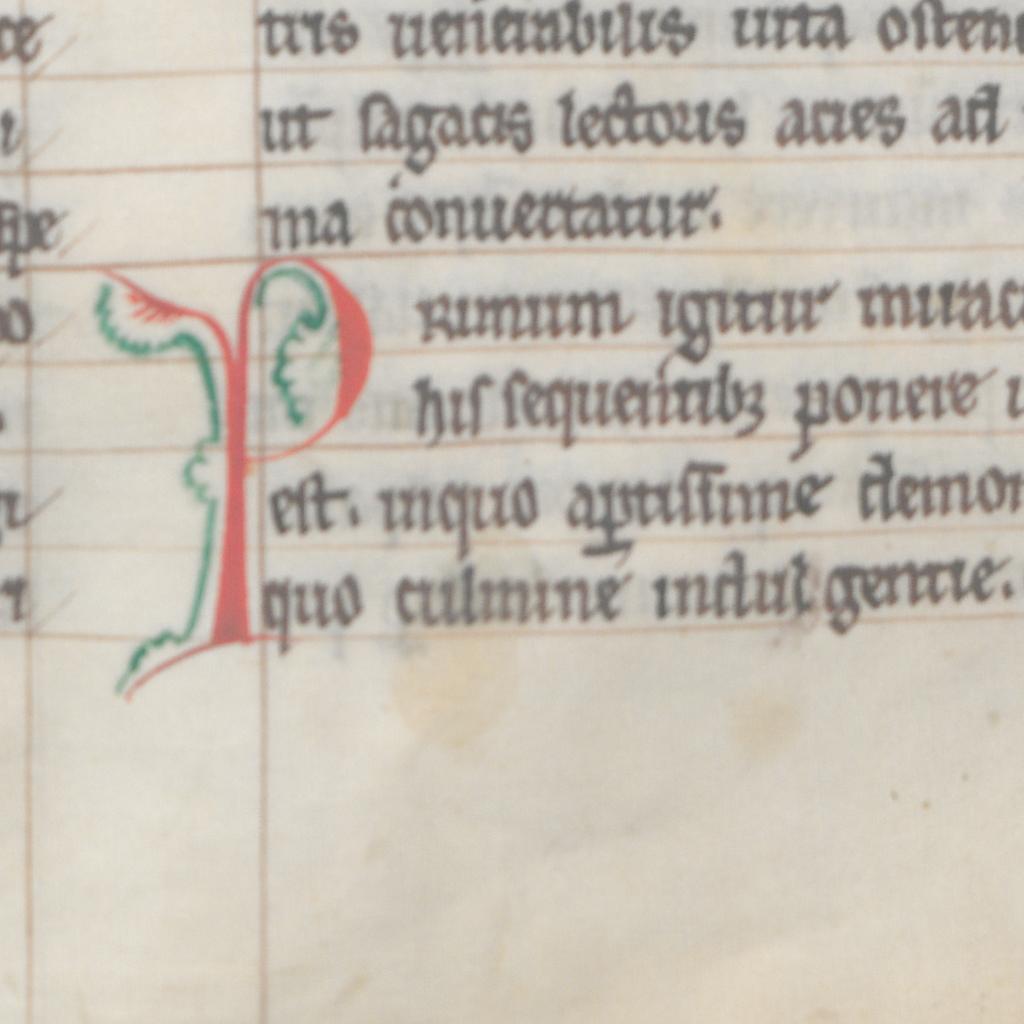 tris uenerabilis uita osten
ut sagacis lectoris acies ad
ma conuertatur.
Primum igitur mirac
his sequentib; ponere
est. inquo aptissime demon
quo culmine indulgentie.